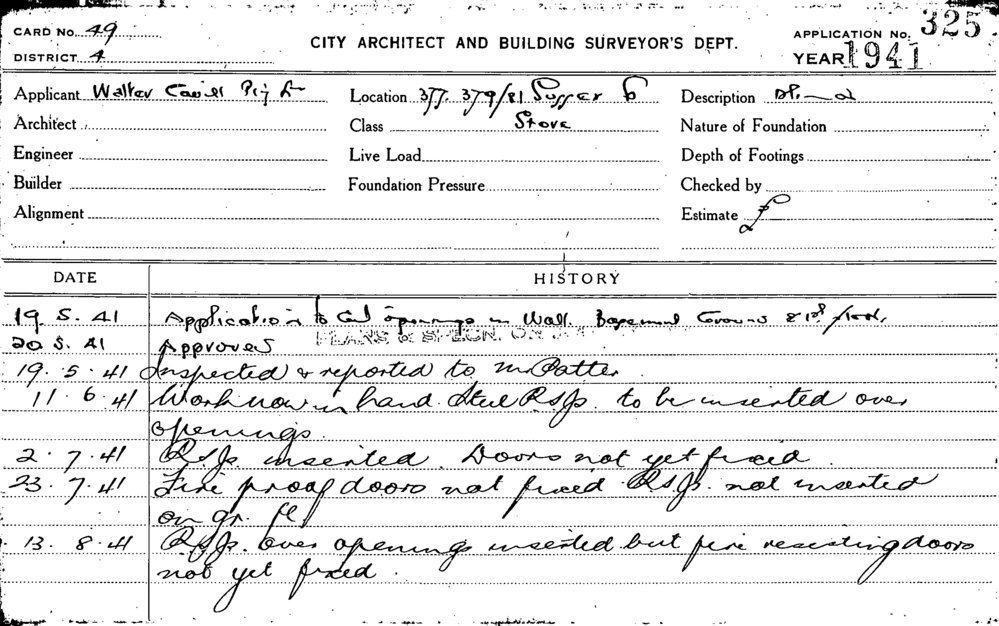 CARD No. 49
DISTRICT 4
CITY ARCHITECT AND BUILDING SURVEYOR'S DEPT.
APPLICATION No. 325
YEAR 1941
Applicant Walter Pty
Location 377. 379/81 Sussex
Description
Architect
Class Store
Nature of Foundation
Engineer
Live Load
Depth of Footings
Builder
Foundation Pressure
Checked by
Alignment
Estimate £
DATE HISTORY
19. 5. 41 Application to Cut openings in Wall. Basement Ground & 1st floor.
PLANS & SPECN. ON
20 5. 41 Approved
19. 5. 41 Inspected & reported to Mr
11. 6. 41 Work now in hand. Steel R.S.Js. to be inserted over
openings.
2. 7. 41 R.S.Js inserted. Doors not yet fixed.
23. 7. 41 Fire proof doors not fixed R.S.Js. not inserted
on gr. fl
13. 8. 41 R.S.Js. over openings inserted but fire resisting doors
not yet fixed.